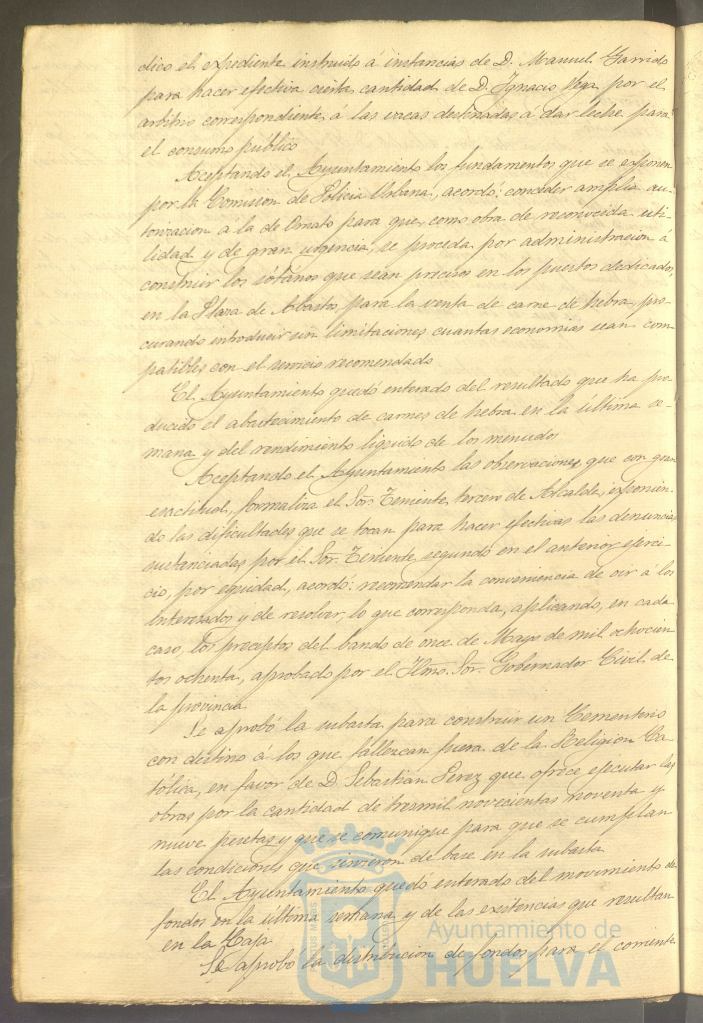 dico el expediente instruido á instancias de D. Manuel Garrido
para hacer efectiva cierta cantidad de D. Ygnacio Vega por el
arbitrio correspondiente á las vacas destinadas á dar leche para
el consumo público
Aceptando el Ayuntamiento los fundamentos que se exponen
por la Comision de Policia Urbana, acordó: conceder amplia au-
torizacion a la de Ornato para que, como obra de reconocida uti-
lidad y de gran urgencia, se proceda por administracion á
construir los sótanos que sean precisos en los puestos dedicados,
en la Plaza de Abastos para la venta de carne de hebra, pro-
curando introducir sin limitaciones cuantas economias sean com
patibles con el servicio recomendado
El Ayuntamiento quedó enterado del resultado que ha pro-
ducido el abastecimiento de carnes de hebra en la última se-
mana y del rendimiento liquido de los menudos
Aceptando el Ayuntamiento las observaciones que con gran
exactitud, formaliza el Sor. Teniente tercero de Alcalde, exponien-
do las dificultades que se tocan para hacer efectivas las denuncias
sustanciadas por el Sor. Teniente segundo en el anterior ejerci-
cio, por equidad, acordó: recomendar la conveniencia de oir á los
interesados y de resolver, lo que corresponda, aplicando, en cada
caso, los preceptos del bando de once de Mayo de mil ochocien
tos ochenta, aprobado por el Iltmo. Sor. Gobernador Civil de
la provincia
Se aprobó la subasta para construir un Cementerio
con destino á los que fallezcan fuera de la Religion Ca-
tólica, en favor de D. Sebastián Perez que ofrece ejecutar las
obras por la cantidad de tresmil novecientas noventa y
nueve pesetas y que se comunique para que se cumplan
las condiciones que sirvieron de base en la subasta
El Ayuntamiento quedó enterado del movimiento de
fondos en la última semana y de las existencias que resultan
en la Caja
Se aprobó la distribucion de fondos para el corriente
Ayuntamiento de
HUELVA